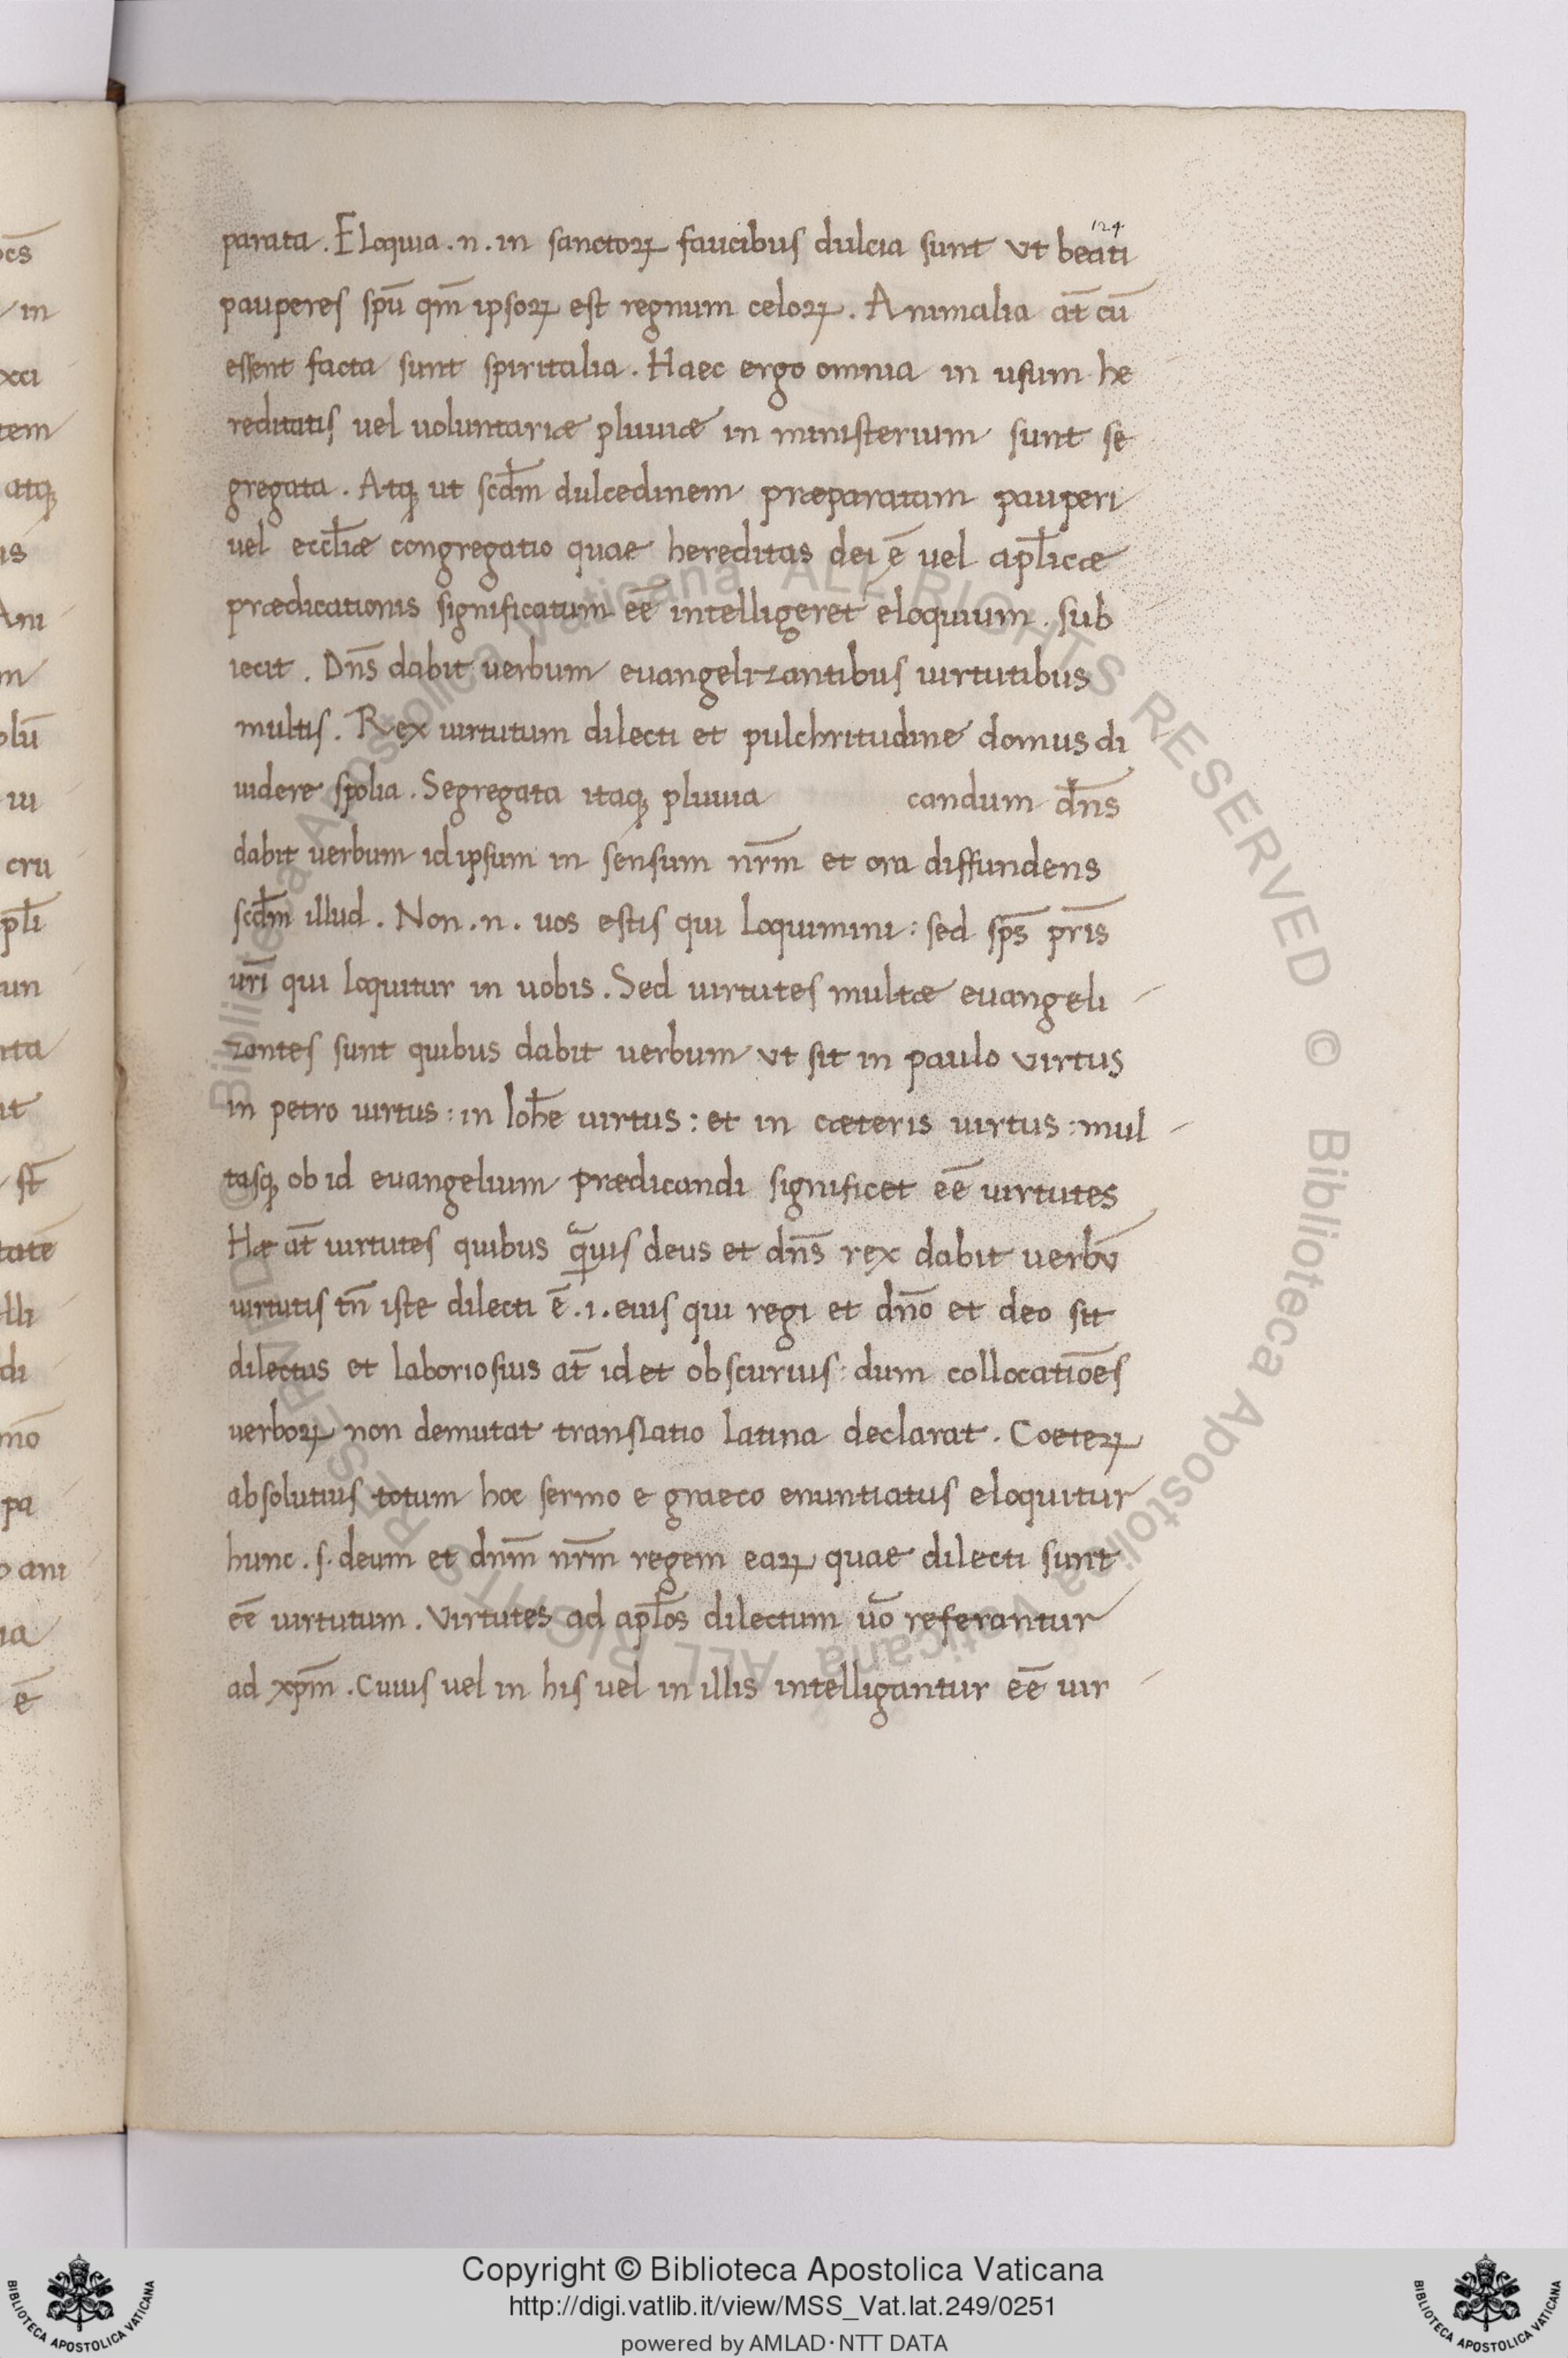 124
parata. Eloquia .n. in sanctoꝝ faucibus dulcia sunt ut beati
pauperes spū qm̄ ipsoꝝ est regnum celoꝝ. Animalia at̄ cū
essent facta sunt spiritalia. Haec ergo omnia in usum he
reditatis uel uoluntariæ pluuiæ in ministerium sunt se
gregata. Atq; ut scd̄m dulcedinem præparatam pauperi
uel eccl̄iæ congregatio quae hereditas dei ē uel apl̄icæ
prædicationis significatum eē intelligeret eloquium. sub
iecit. Dn̄s dabit uerbum euangelizantibus uirtutibus
multis. Rex uirtutum dilecti et pulchritudine domus di
uidere spolia. Segregata itaq; pluuia candum dn̄s
dabit uerbum id ipsum in sensum nr̄m et ora diffundens
scd̄m illud. Non .n. uos estis qui loquimini: sed sp̄s pr̄is
ur̄i qui loquitur in uobis. Sed uirtutes multæ euangeli
zantes sunt quibus dabit uerbum ut sit in paulo virtus
in petro uirtus: in Ioh̄e uirtus: et in cæteris uirtus: mul
tasq; ob id euangelium prædicandi significet eē uirtutes
Hæ at̄ uirtutes quibus q̱̃uis deus et dn̄s rex dabit uerbū
uirtutis tn̄ iste dilecti ē .i. eius qui regi et dn̄o et deo sit
dilectus et laboriosius at̄ id et obscurius: dum collocatiōes
uerboꝝ non demutat translatio latina declarat. Coeteꝝ
absolutius totum hoc sermo e graeco enuntiatus eloquitur
hunc .s. deum et dnm̄ nr̄m regem eaꝝ quae dilecti sunt
eē uirtutum. Virtutes ad apl̄os dilectum uō referantur
ad xpm̄. Cuius uel in his uel in illis intelligantur eē uir
Copyright © Biblioteca Apostolica Vaticana
http://digi.vatlib.it/view/MSS_Vat.lat.249/0251
powered by AMLAD·NTT DATA